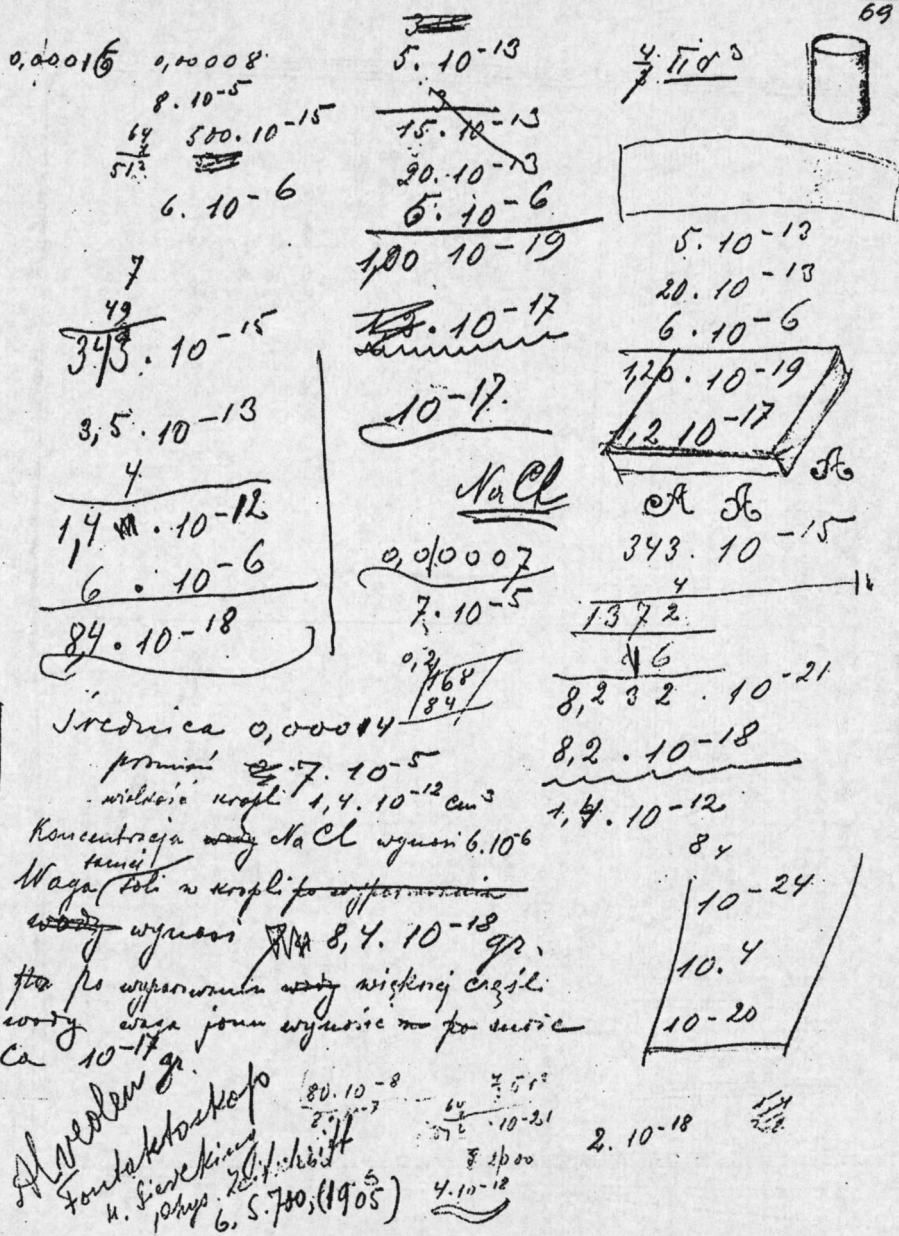 69
0,00016 0,00008
8. 10-5
64
8
512
500. 10-15
6. 10-6
7
49
343. 10-15
3,5. 10-13
4
1,4 . 10-12
6 . 10-6
8,4. 10-18
5. 10-13
3
15. 10-13
20. 10-13
6. 10-6
1,20 10-19
1,2. 10-17
10-17.
NaCl
0,00007
7. 10-5
0,2
168
84
4/3 π r 3
5. 10-13
20. 10-13
6. 10-6
1,20. 10-19
1,2 10-17
A A A
343. 10-15
4
1372
6
8,232. 10-21
8,2. 10-18
1,4. 10-12
84
10-24
10.4
10-20
Średnica 0,00014
promień 7. 10-5
wielkość kropli 1,4. 10-12 cm3
Koncentracja wody NaCl wynosi 6.106
Waga samej soli w kropli po wyparowaniu
wody wynosi 8,4. 10-18 gr.
Po wyparowaniu wody większej części
wody waga jonu wynosić po
ca 10-17 gr.
Alveolen
Fontaktoskop
u. Sieveking
phys. Zeitschrift
6. S.700; (1905)
80. 10-8
64
512 . 10-21
4.10-18
2. 10-18